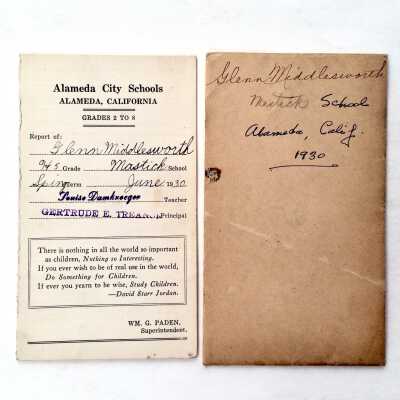 Alameda City Schools
ALAMEDA, CALIFORNIA
GRADES 2 TO 8
Report of:
Glenn Middlesworth
Grade Mastick School
Term June 1930
Louise Teacher
GERTRUDE E. Principal
There is nothing in all the world so important
as children, Nothing so Interesting.
If you ever wish to be of real use in the world,
Do Something for Children.
If ever you yearn to be wise, Study Children.
—David Starr Jordan.
WM. G. PADEN,
Superintendent.
Glenn Middlesworth
Mastick School
Alameda, Calif.
1930